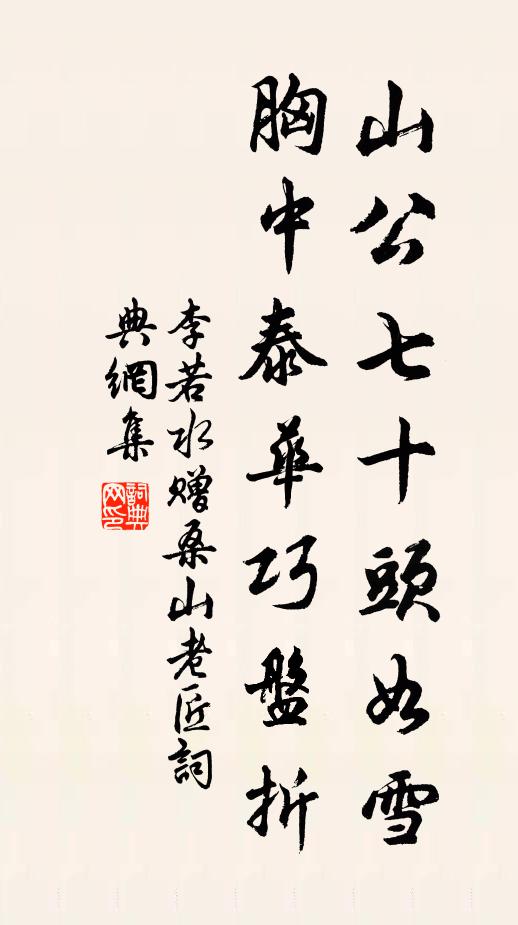 山公七十頭如雪
胸中泰華巧盤折
李若水赠桑山老匠詞
典網集
詞典
网印